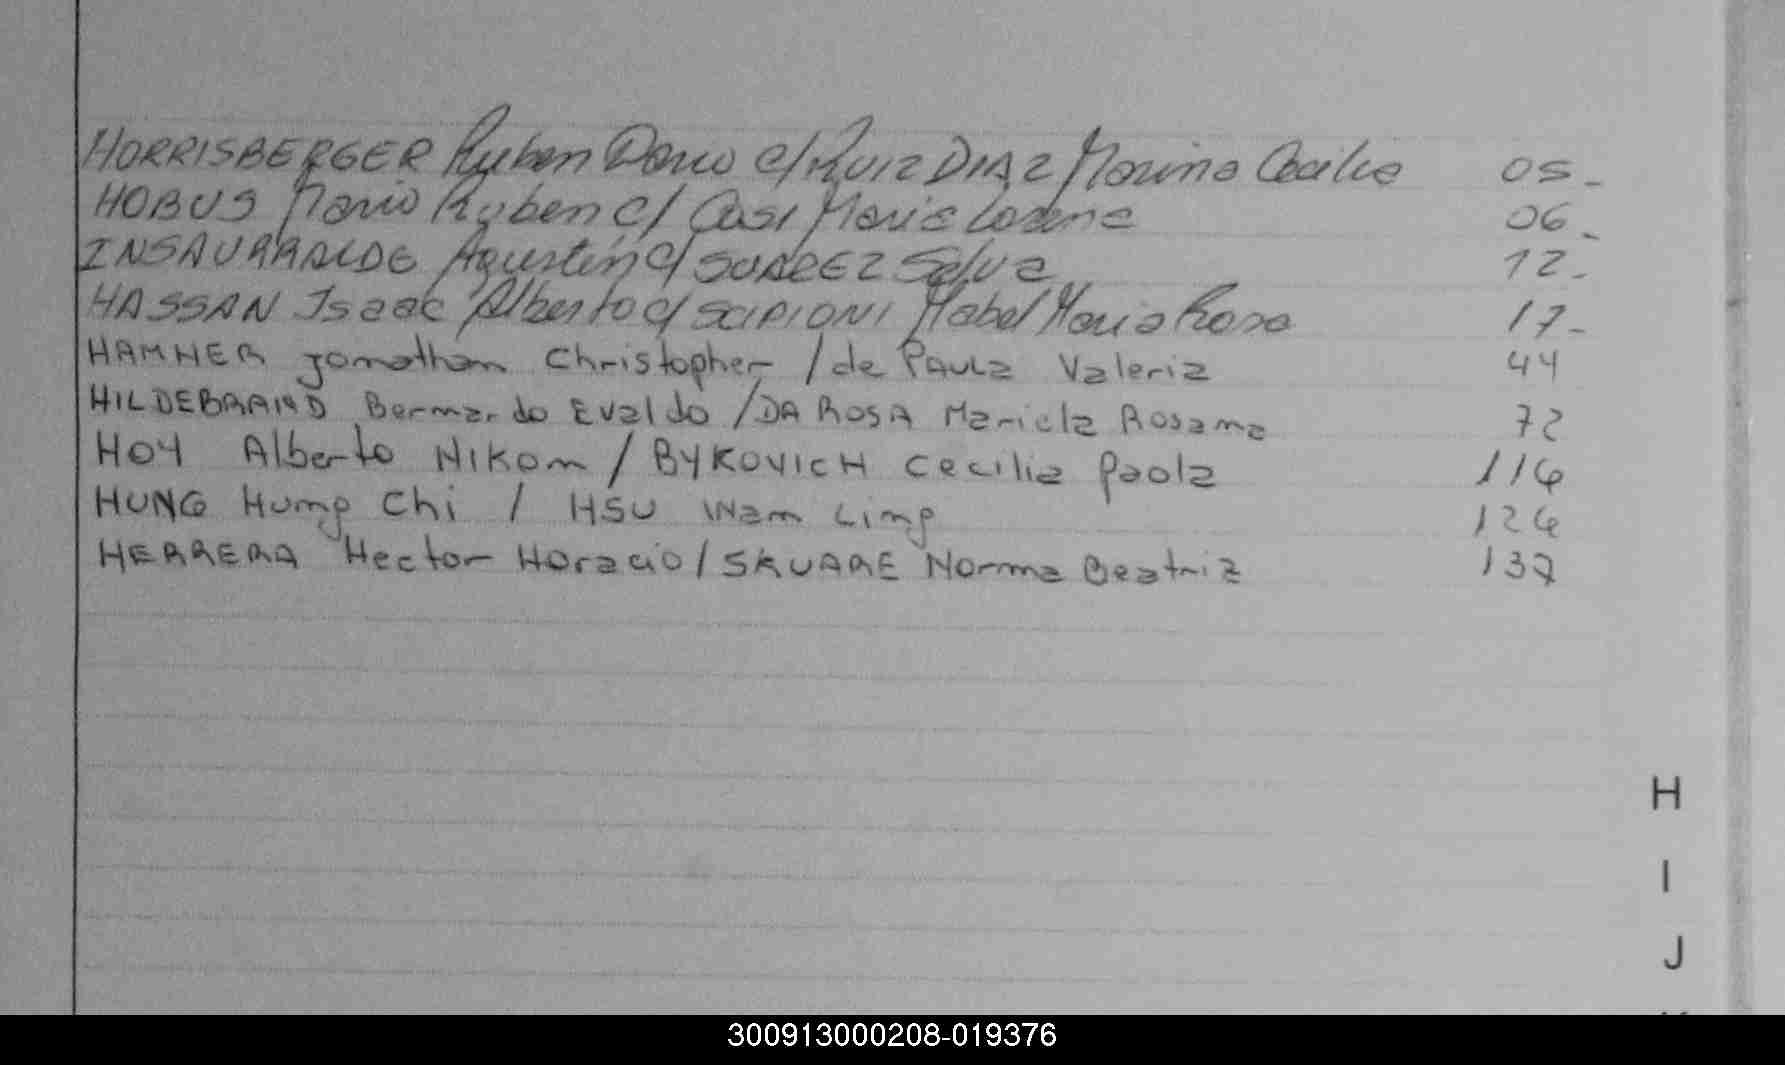 HORRISBERGER Ruben Dario c/ RUIZ DIAZ Marina Cecilia 05-
HOBUS Mario Ruben c/ Casi Maria Lorena 06-
INSAURRALDE Agustin c/ SUAREZ Selva 12-
HASSAN Isaac Alberto c/ SCIPIONI Mabel Maria Rosa 17-
HAMMER Jonathan Christopher / de PAULA Valeria 44
HILDEBRAND Bernardo Evaldo / DA ROSA Mariela Rosana 72
HOY Alberto Nikon / BYKOVICH Cecilia Paola 116
HUNG Hung Chi / HSU Wan Ling 126
HERRERA Hector Horacio / SKUARE Norma Beatriz 137
H
I
J
300913000208-019376